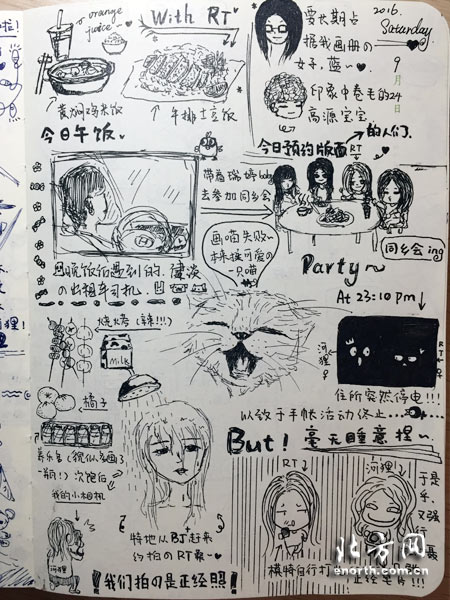 orange juice
With RT
黄焖鸡米饭
牛排土豆饭
今日午饭
要长期占
据我画册的
女子,蓝~
2016.
Saturday
9月24日
印象中卷毛的
高源宝宝
的人们.
今日预约版面
RT
带着瑞婷baby
去参加同乡会
同乡会 ing
画喵失败~
本来挺可爱の
一只喵
晚饭后遇到的
の出租车司机.
Party~
At 23:10 pm
烧烤(辣!!!)
Milk
橘子
河狸
RT
住所突然停电!!!
以致于手帐活动终止...
But! 毫无睡意捏~
我的小相机
河狸
特地从BJ赶来
约拍の RT君
!我们拍の是正经照!!
RT
河狸
于是乎,又强行
模特自行打
正经毛片!!!
北方网
enorth.com.cn